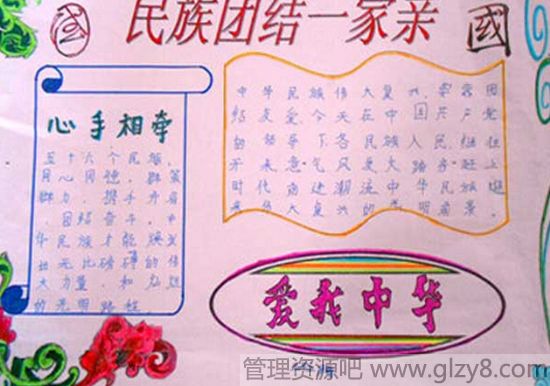 民族团结一家亲
國
心手相牵
五十六个民族，
同心同德，群策
群力，携手并肩
，团结奋斗，中
华民族才能焕发
出无比磅礴的伟
大力量，和灿烂
的光明路程。
中华民族伟大复兴，需要团
结友爱，今天在中国共产党
的领导下各民族人民，继往
开来，意气风发大踏步赶上
时代前进潮流中华民族迎
来伟大复兴的光明前景。
爱我中华
管理资源吧 www.glzy8.com